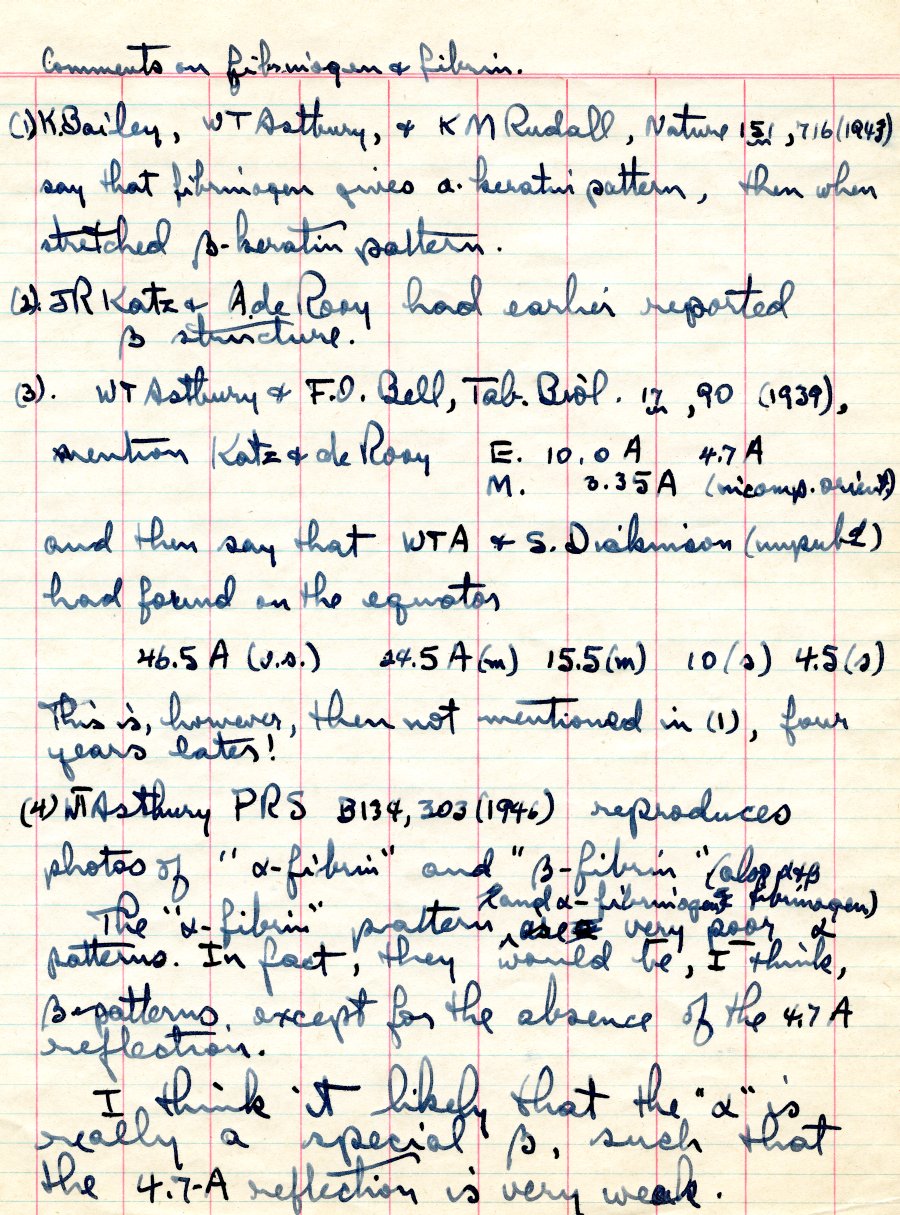 Comments on fibrinogen & fibrin.
(1) K. Bailey, WT Astbury, & K M Rudall, Nature 151, 716 (1943)
say that fibrinogen gives α-keratin pattern, then when
stretched β-keratin pattern.
(2). JR Katz & A. de Rooy had earlier reported
β structure.
(3). WT Astbury & F.O. Bell, Tab. Biol. 17, 90 (1939),
mention Katz & de Rooy E. 10.0 A 4.7 A
M. 3.35 A (incomp. orient)
and then say that WTA & S. Dickinson (unpubl)
had found on the equator
26.5 A (v.s.) 24.5 A (m) 15.5 (m) 10 (s) 4.5 (s)
This is, however, then not mentioned in (1), four
years later!
(4) WT Astbury PRS B134, 303 (1946) reproduces
photos of "α-fibrin" and "β-fibrin" (also α & β
fibrinogen)
The "α-fibrin" pattern and α-fibrinogen are very poor α
patterns. In fact, they would be, I think,
β-patterns except for the absence of the 4.7 A
reflection.
I think it likely that the "α" is
really a special β, such that
the 4.7-A reflection is very weak.